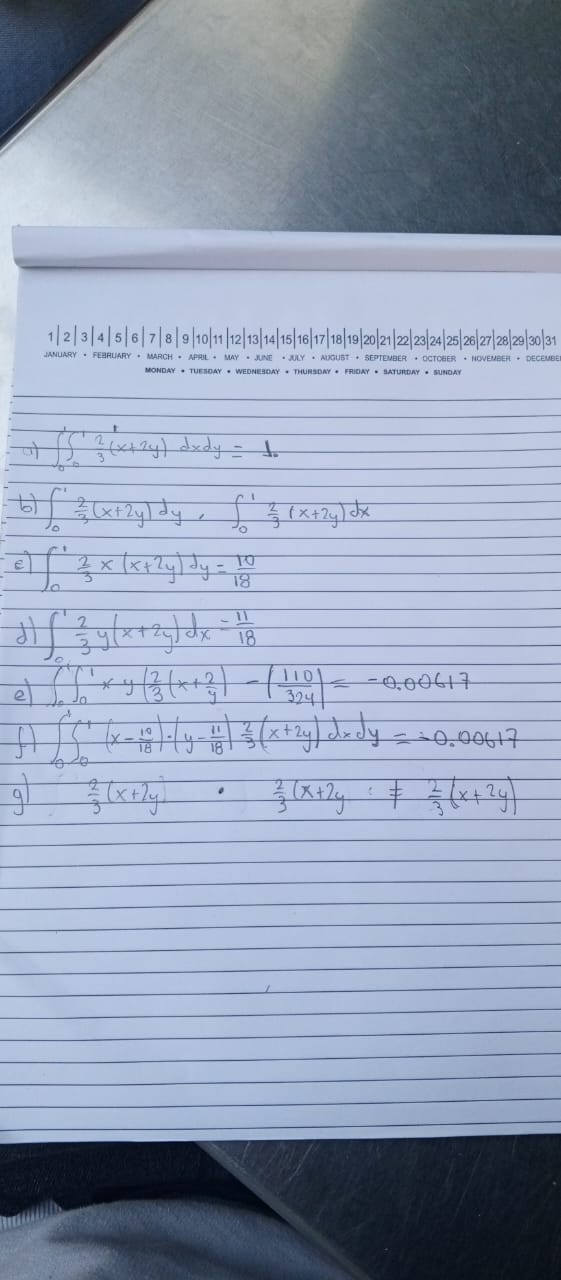 1|2|3|4|5|6|7|8|9|10|11|12|13|14|15|16|17|18|19|20|21|22|23|24|25|26|27|28|29|30|31
JANUARY • FEBRUARY • MARCH • APRIL • MAY • JUNE • JULY • AUGUST • SEPTEMBER • OCTOBER • NOVEMBER • DECEMBE
MONDAY • TUESDAY • WEDNESDAY • THURSDAY • FRIDAY • SATURDAY • SUNDAY
a) ∫₀¹∫₀¹ 2/3 (x+2y) dxdy = 1.
b) ∫₀¹ 2/3 (x+2y) dy , ∫₀¹ 2/3 (x+2y) dx
c) ∫₀¹ 2/3 x (x+2y) dy = 10/18
d) ∫₀¹ 2/3 y (x+2y) dx = 11/18
e) ∫₀¹∫₀¹ x y (2/3 (x+2/y) - (110/324) = -0.00617
f) ∫₀¹∫₀¹ (x-10/18)·(y-11/18) 2/3 (x+2y) dxdy = -0.00617
g) 2/3 (x+2y) · 2/3 (x+2y ≠ 2/3 (x+2y)